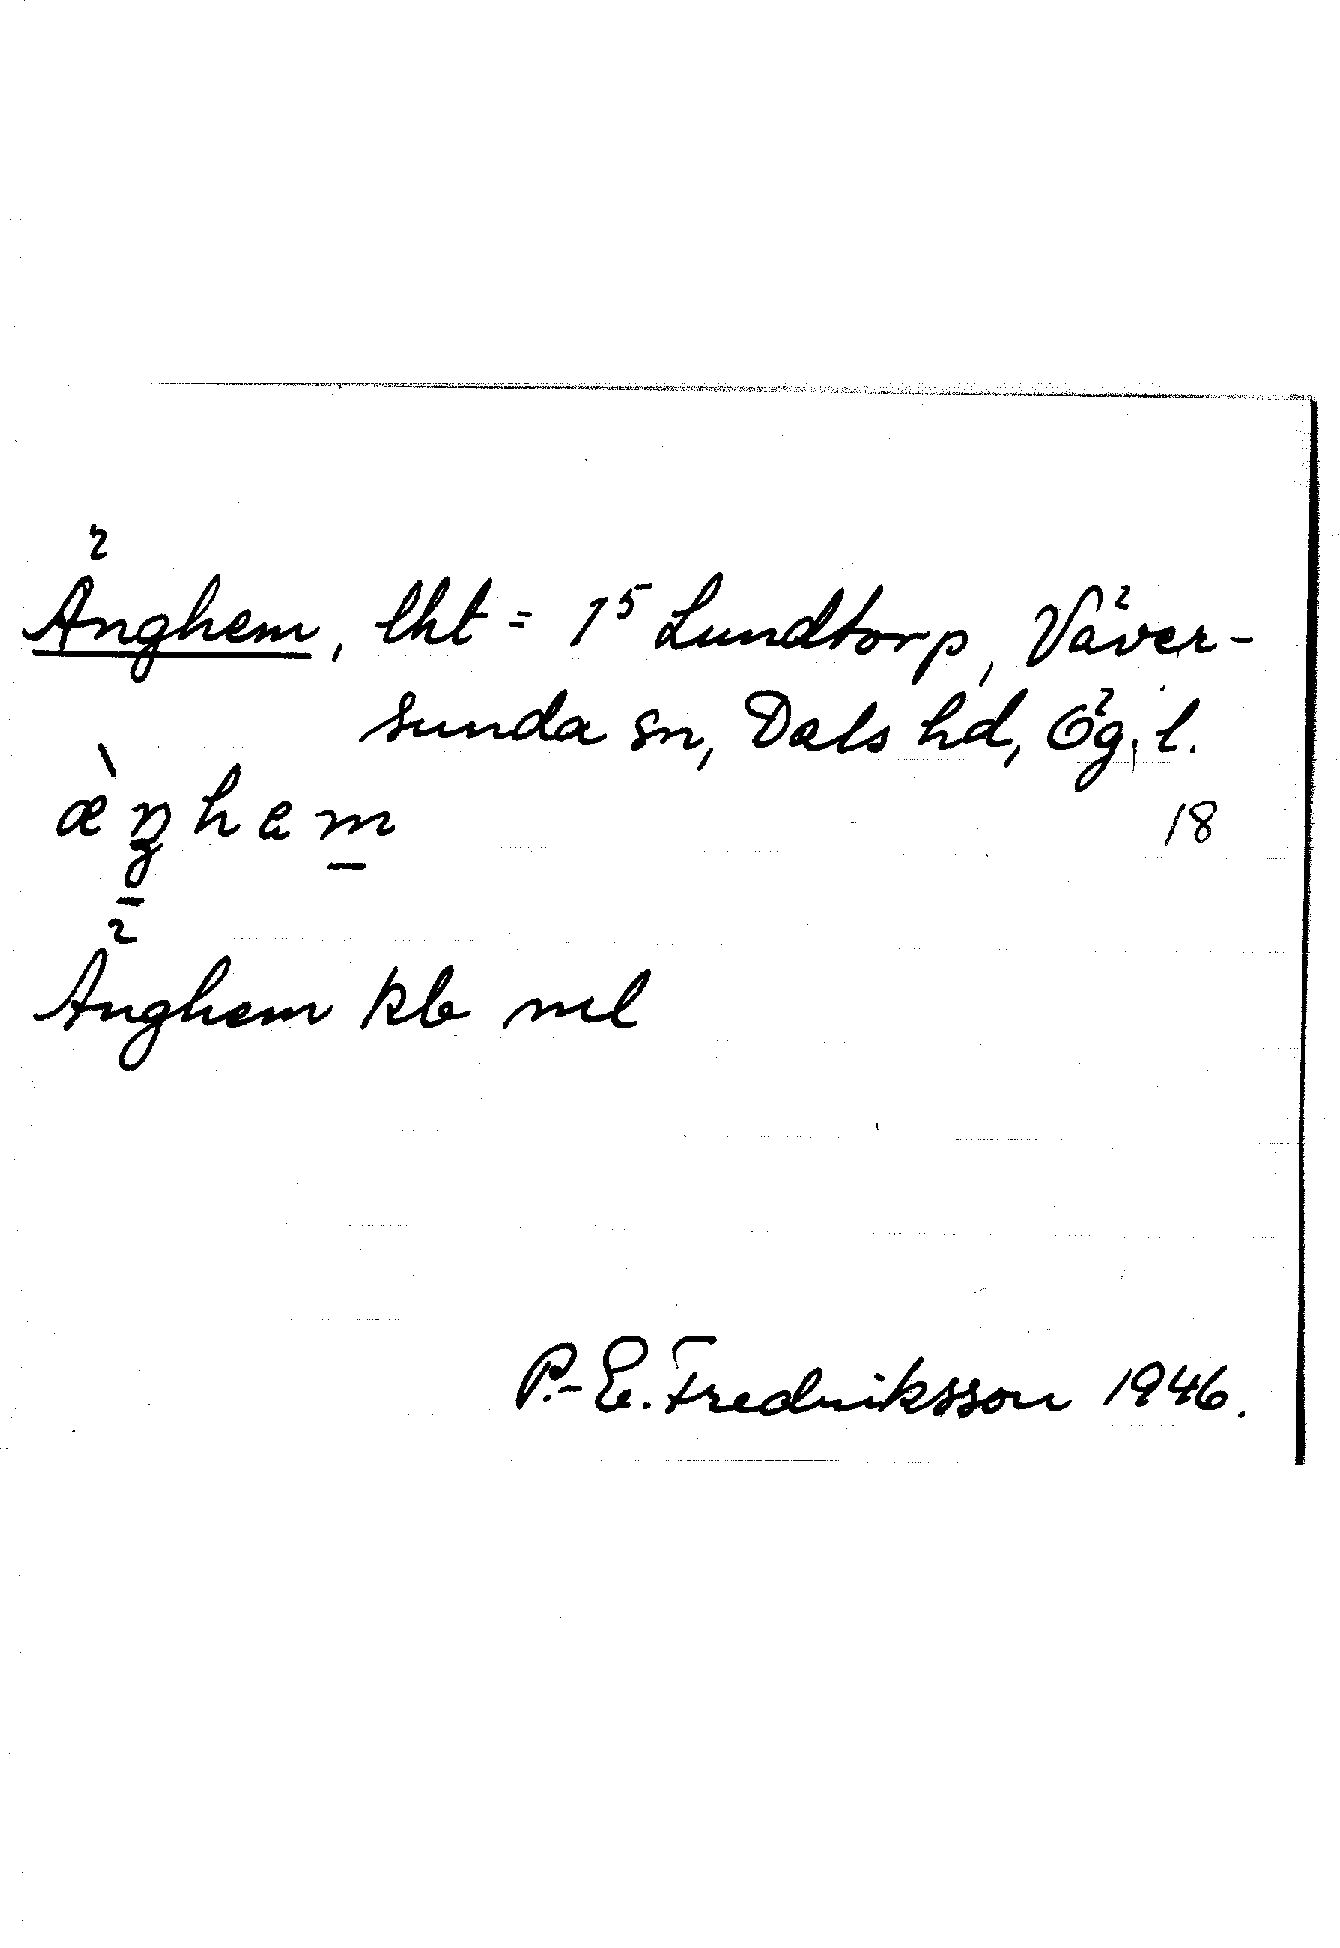 Änghem, lht = 1⁵ Lundtorp, Väver-
sunda sn, Dals hd, Ög. l.
æ̀ŋhem
18
Änghem kb ml
P.-E. Fredriksson 1946.